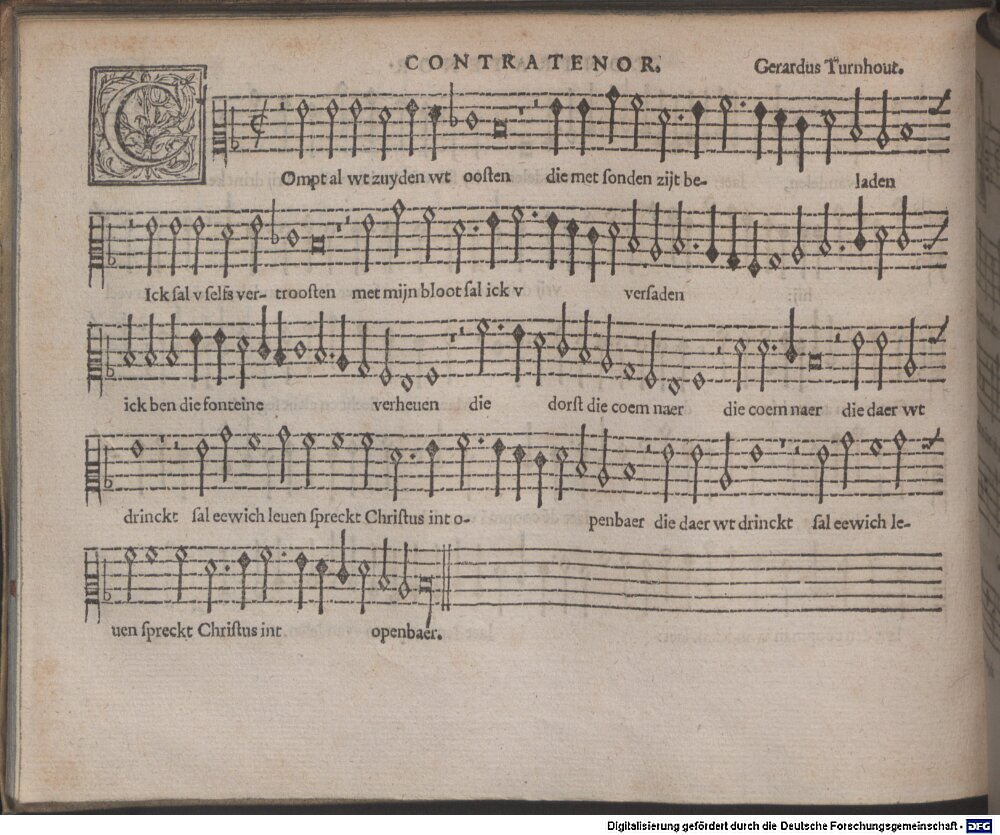 CONTRATENOR. Gerardus Turnhout.
COmpt al wt zuyden wt oosten die met sonden zijt be- laden
Ick sal v selfs ver- troosten met mijn bloot sal ick v versaden
ick ben die fonteine verheuen die dorst die coem naer die coem naer die daer wt
drinckt sal eewich leuen spreckt Christus int o- penbaer die daer wt drinckt sal eewich le-
uen spreckt Christus int openbaer.
Digitalisierung gefördert durch die Deutsche Forschungsgemeinschaft - DFG